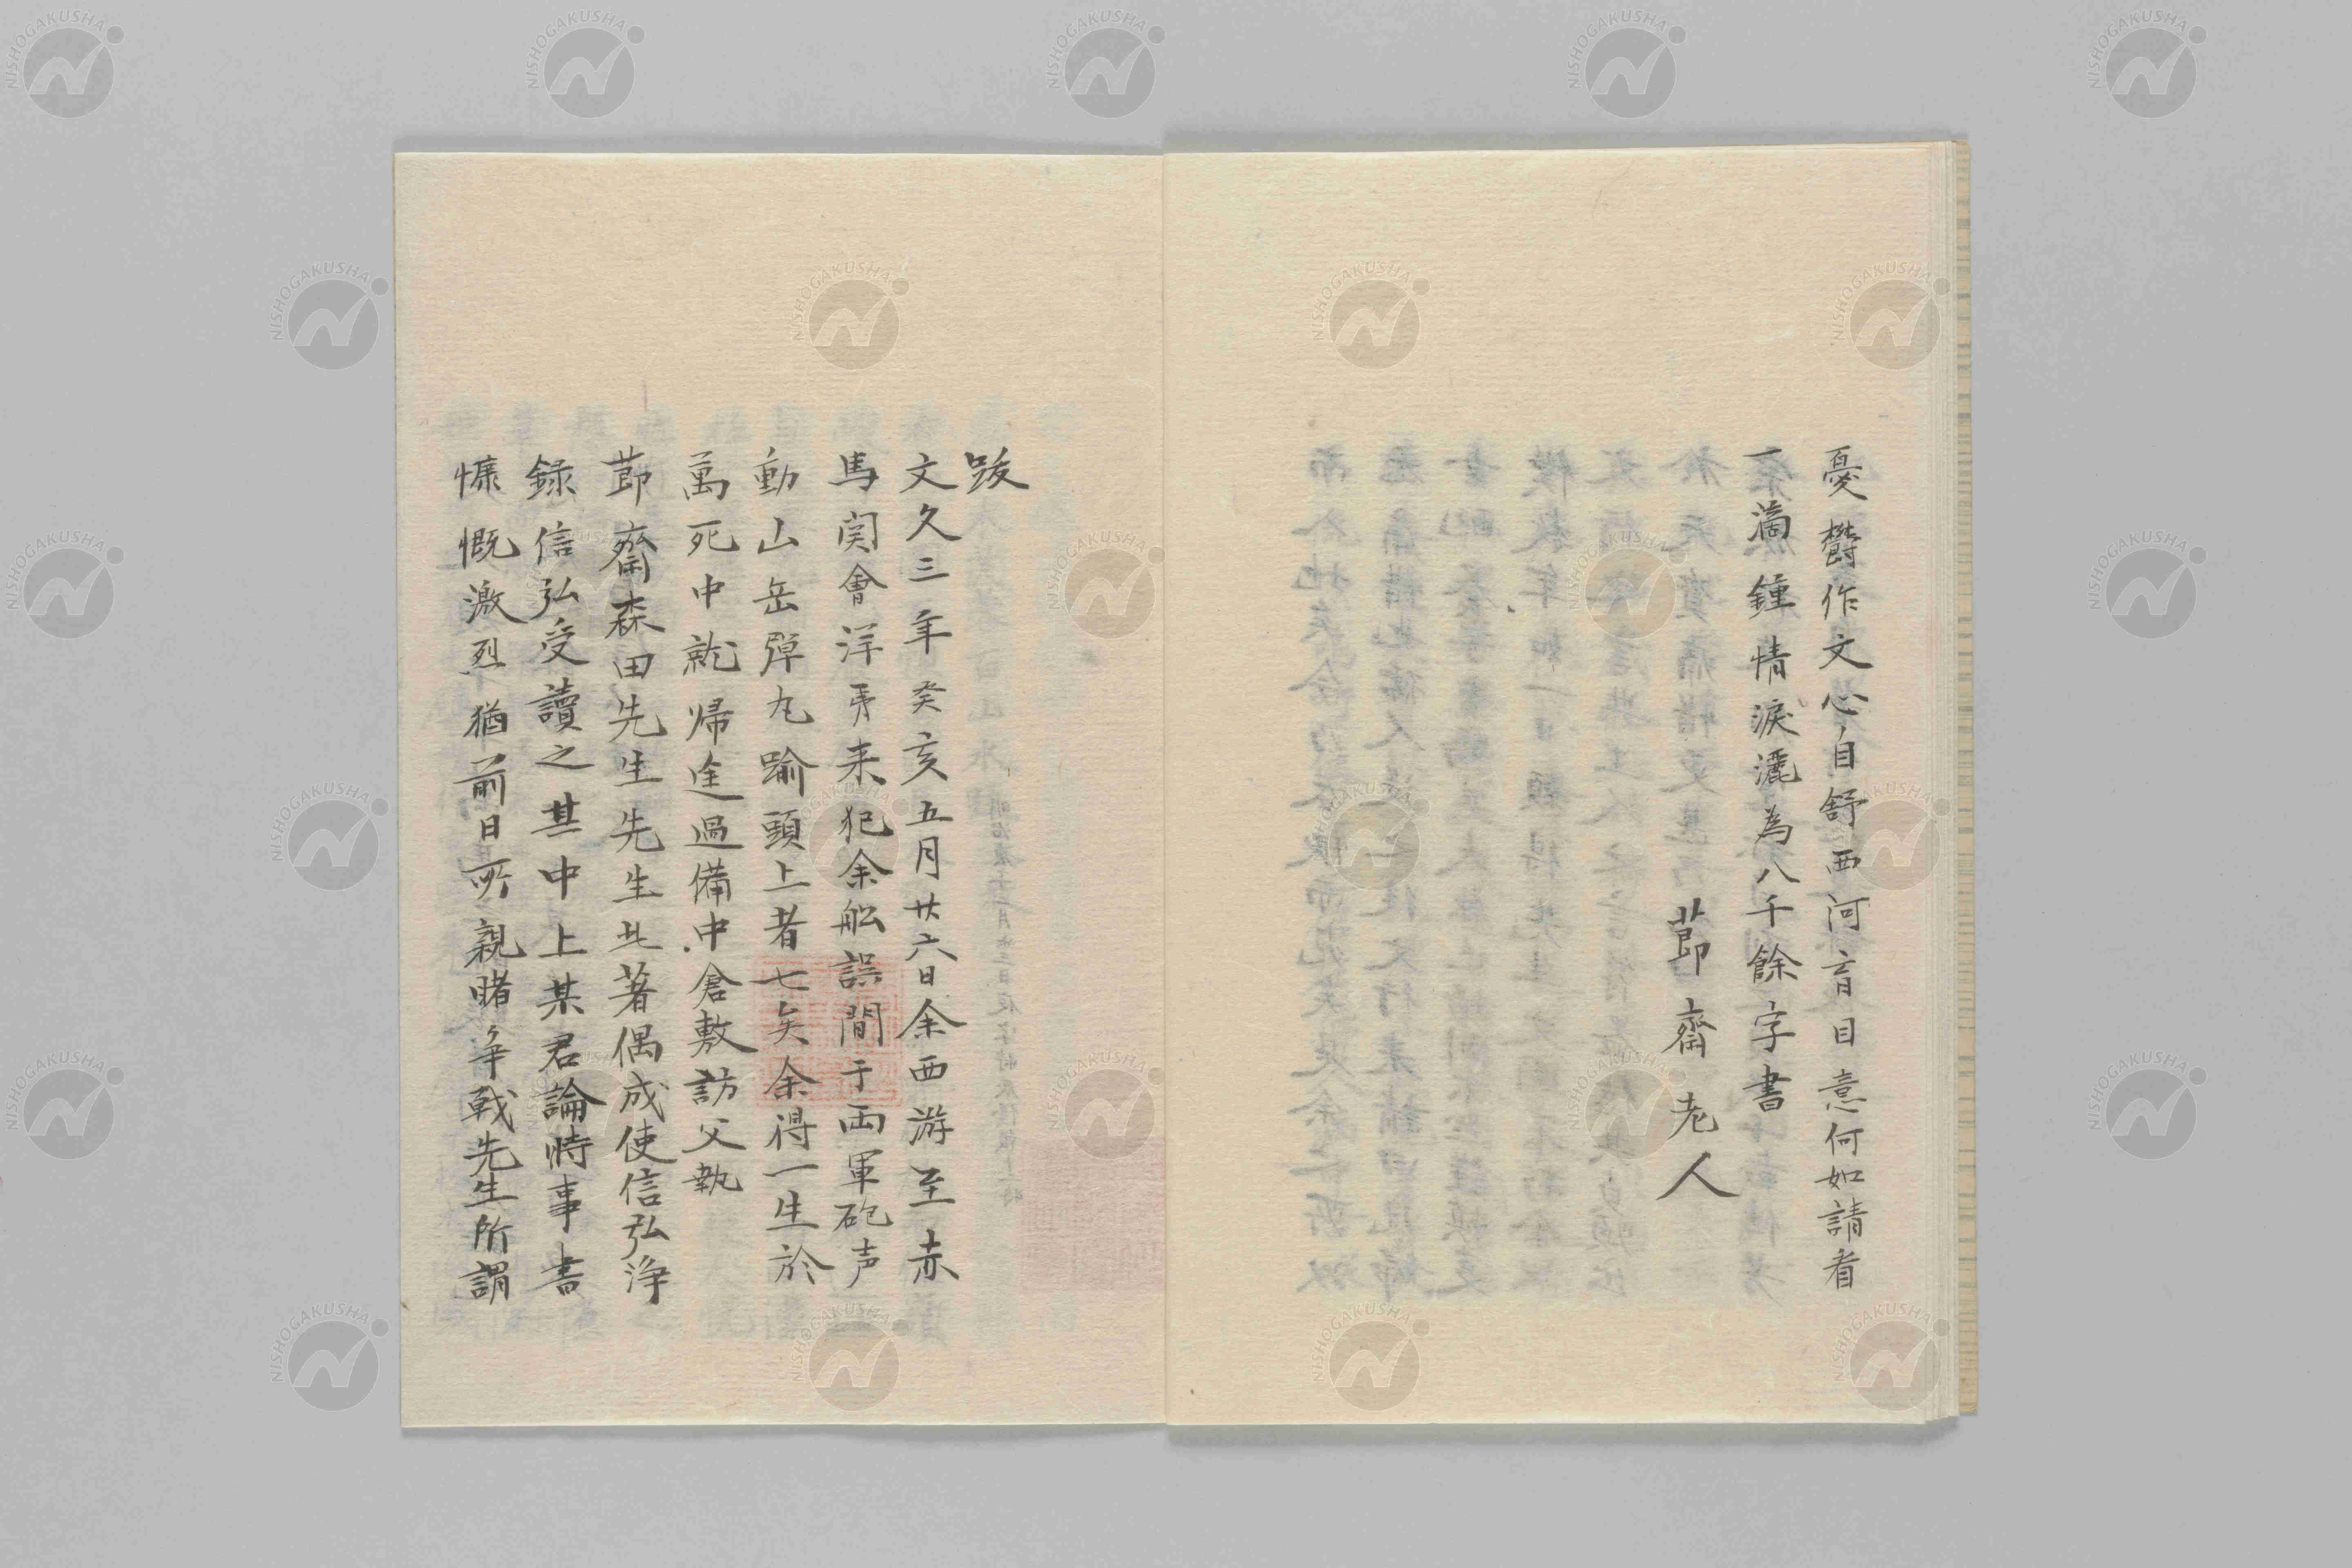 憂欝作文心自舒西河盲目意何如請看
一滴鍾情淚灑為八千餘字書
莭齋老人
跋
文久三年癸亥五月廿六日余西游至赤
馬関會洋夷来犯余舩誤間于両軍砲声
動山岳彈丸踰頭上者七矣余得一生於
萬死中就帰途過備中倉敷訪父執
莭齋森田先生先生此著偶成使信弘浄
録信弘受讀之其中上某君論時事書
慷慨激烈猶前日所親睹争戦先生所謂
NISHOGAKUSHA